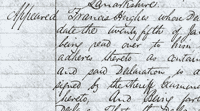 Lanarkshire.
Appeared Francis Hughes whose De
date the twenty fifth of Ja
being read over to him
adheres thereto as contain
and said Declaration is
signed by the Sheriff
thereto and